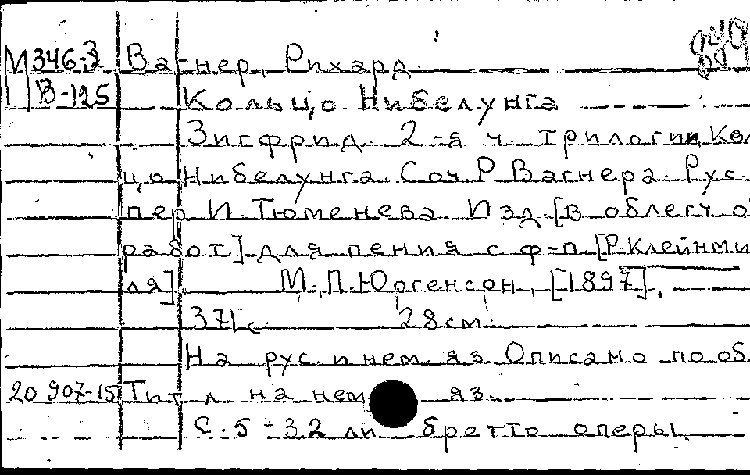 М 346-3 Вагнер, Рихард
В-125 Кольцо Нибелунга
Зигфрид. 2-я ч. трилогии Коль
цо Нибелунга. Соч. Р. Вагнера. Рус.
пер. И. Тюменева. Изд. [в облегч. о
работ.] для пения с ф-п. [Р. Клейнми
ля]. М., П. Юргенсон, [1897].
371 с. 28 см.
На рус. и нем. яз. Описано по об
20 907-15 Тит. л. на нем. яз.
С. 5-32 либретто оперы